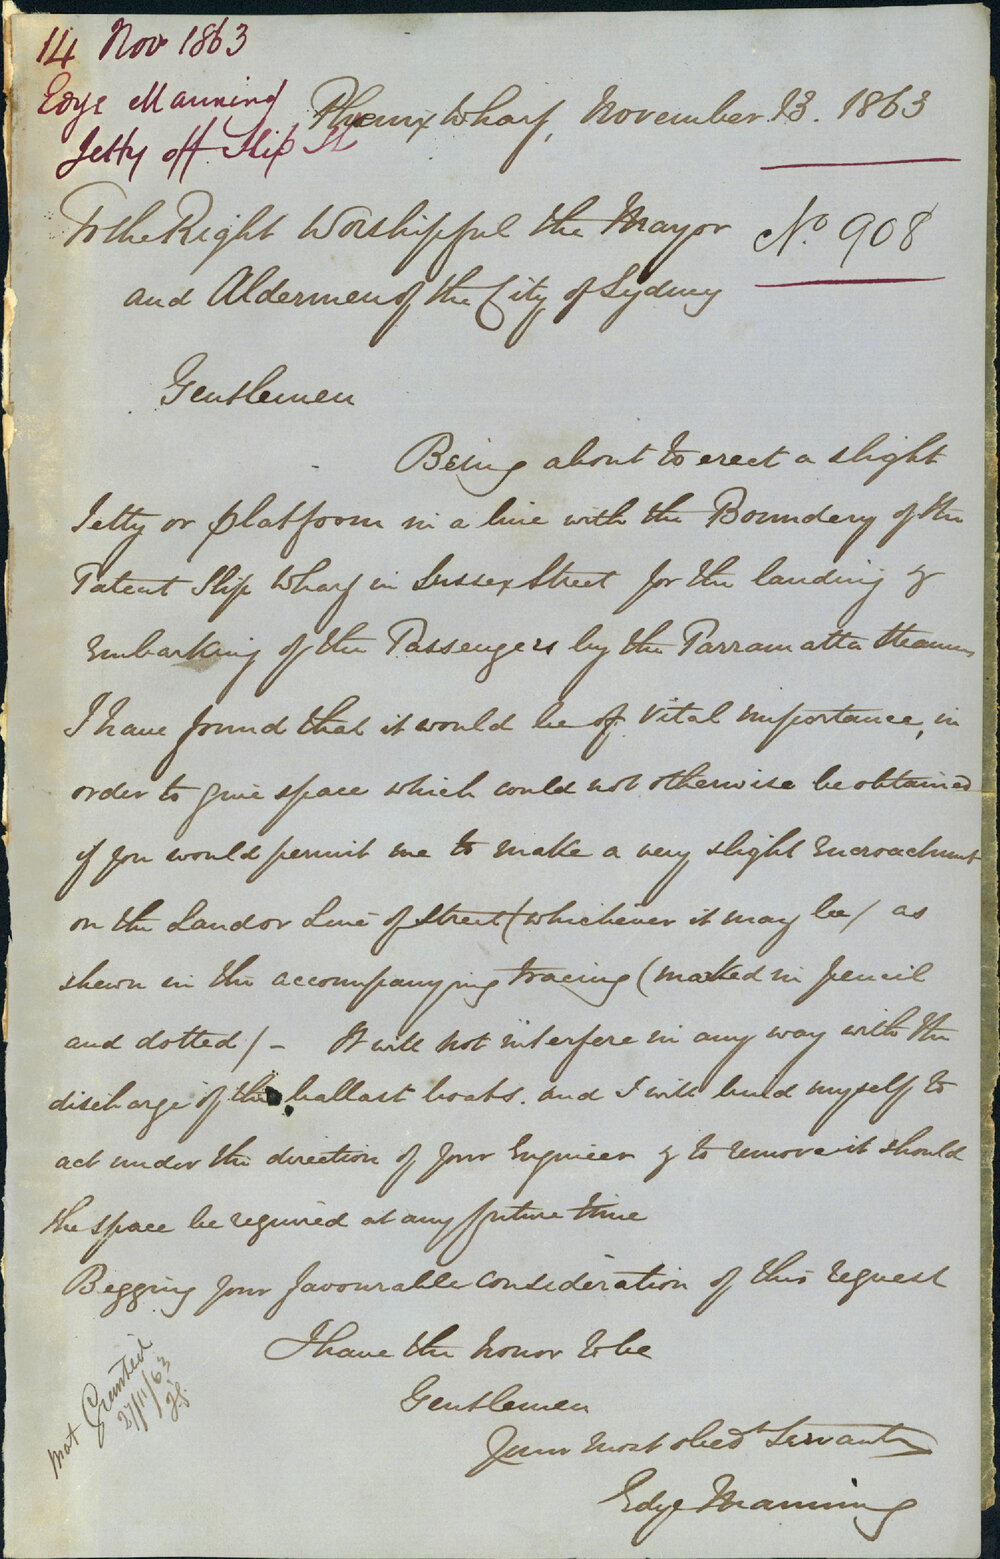 14 Nov 1863
Edye Manning
Jetty off Slip St
Phoenix Wharf, November 13. 1863
To the Right Worshipful the Mayor
No 908
and Aldermen of the City of Sydney
Gentlemen
Being about to erect a slight
Jetty or platform in a line with the Boundery of the
Patent Slip Wharf in Sussex Street for the landing &
embarking of the Passengers by the Parramatta Steamers
I have found that it would be of vital importance, in
order to give space which could not otherwise be obtained
if you would permit me to make a very slight encroachment
on the Land or Line of Street (whichever it may be) as
shewn in the accompanying tracing (marked in pencil
and dotted) - It will not interfere in any way with the
discharge of the ballast boats. and I will bind myself to
act under the direction of your Engineer & to remove it should
the space be required at any future time
Begging your favourable consideration of this request
I have the honor to be
Gentlemen
Your most obedt Servant
Edye Manning
not Granted
27/11/63